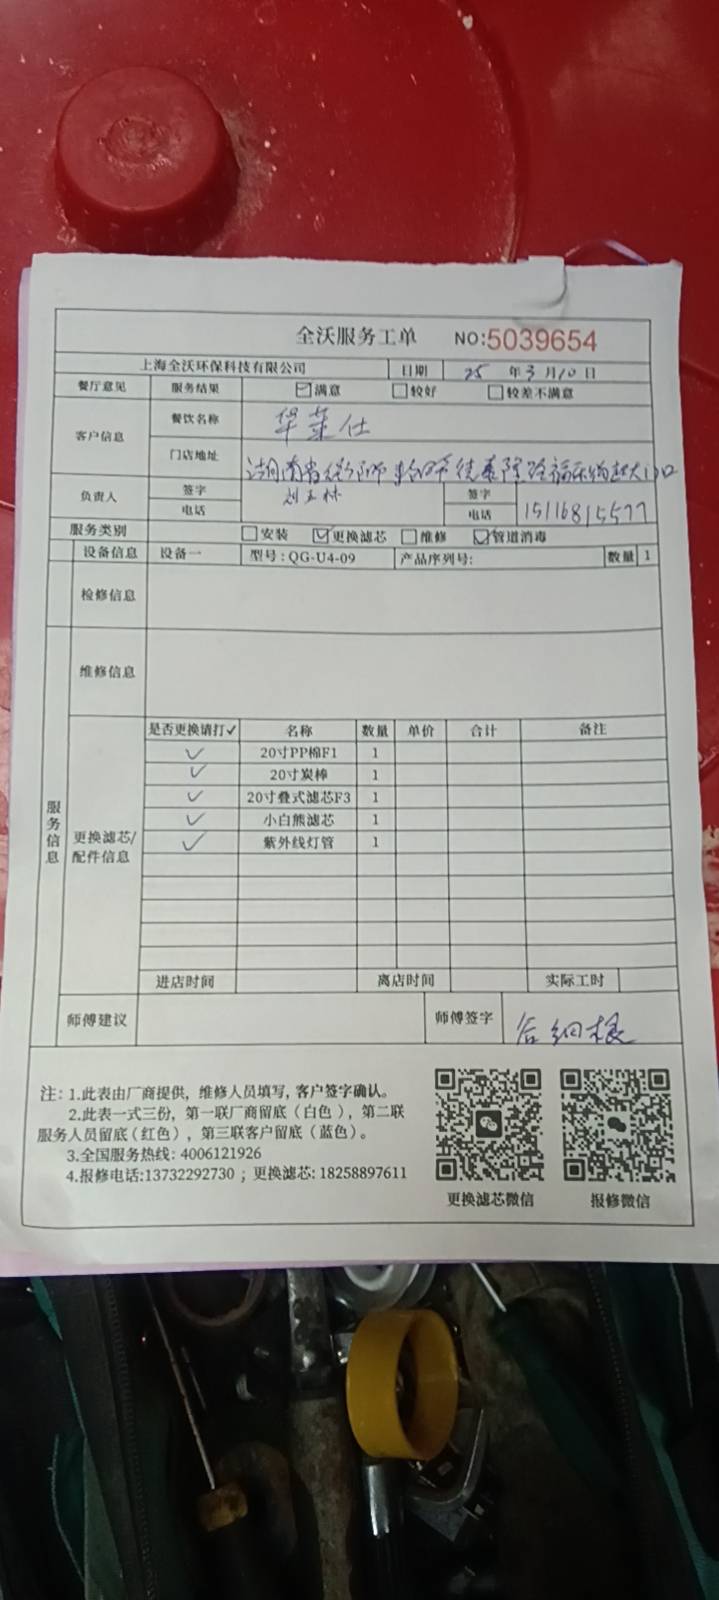 全沃服务工单 NO:5039654
上海全沃环保科技有限公司 日期 25 年 3 月 10 日
餐厅意见 服务结果 ☑满意 □较好 □较差不满意
客户信息 餐饮名称 华莱仕
门店地址 湖南省 德泰隆路福乐
负责人 签字 签字
电话 电话 15116815577
服务类别 □安装 ☑更换滤芯 □维修 ☑管道消毒
设备信息 设备一 型号:QG-U4-09 产品序列号: 数量 1
检修信息
维修信息
服务信息
更换滤芯/配件信息
是否更换请打✓ 名称 数量 单价 合计 备注
✓ 20寸PP棉F1 1
✓ 20寸炭棒 1
✓ 20寸叠式滤芯F3 1
✓ 小白熊滤芯 1
✓ 紫外线灯管 1
进店时间 离店时间 实际工时
师傅建议 师傅签字
注: 1.此表由厂商提供, 维修人员填写, 客户签字确认。
2.此表一式三份, 第一联厂商留底(白色), 第二联
服务人员留底(红色), 第三联客户留底(蓝色)。
3.全国服务热线: 4006121926
4.报修电话:13732292730 ; 更换滤芯: 18258897611
更换滤芯微信 报修微信